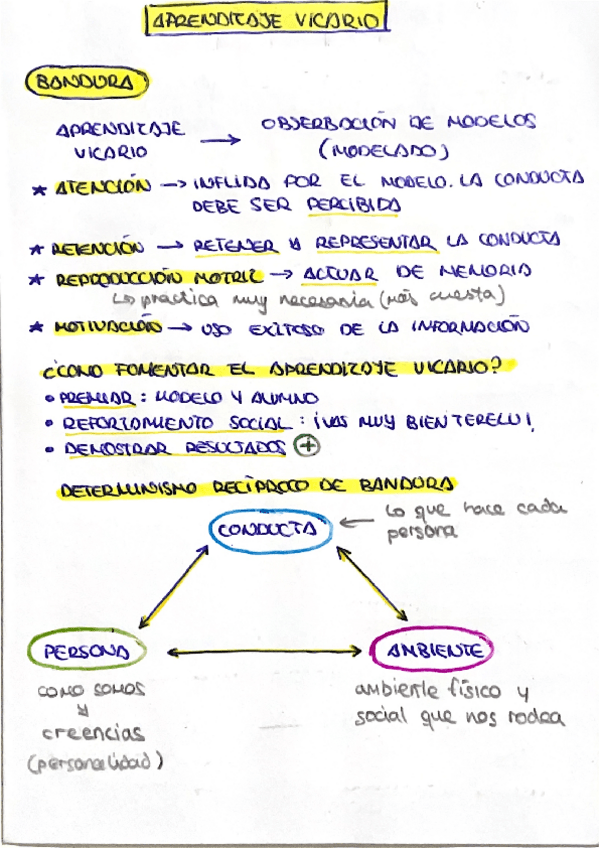 APRENDIZAJE VICARIO
BANDURA
APRENDIZAJE VICARIO → OBSERBACIÓN DE MODELOS (MODELADO)
* ATENCIÓN → INFLUIDA POR EL MODELO. LA CONDUCTA
DEBE SER PERCIBIDA
* RETENCIÓN → RETENER Y REPRESENTAR LA CONDUCTA
* REPRODUCCIÓN MOTRIZ → ACTUAR DE MEMORIA
↳ practica muy necesaria (más cuesta)
* MOTIVACIÓN → USO EXITOSO DE LA INFORMACIÓN
¿COMO FOMENTAR EL APRENDIZAJE VICARIO?
• PREMIAR: MODELO Y ALUMNO
• REFORZAMIENTO SOCIAL: ¡VAS MUY BIEN TERELU!
• DEMOSTRAR RESULTADOS +
DETERMINISMO RECÍPROCO DE BANDURA
CONDUCTA ← lo que hace cada
persona
PERSONA ↔ AMBIENTE
como somos
y
creencias
(personalidad)
ambiente físico y
social que nos rodea